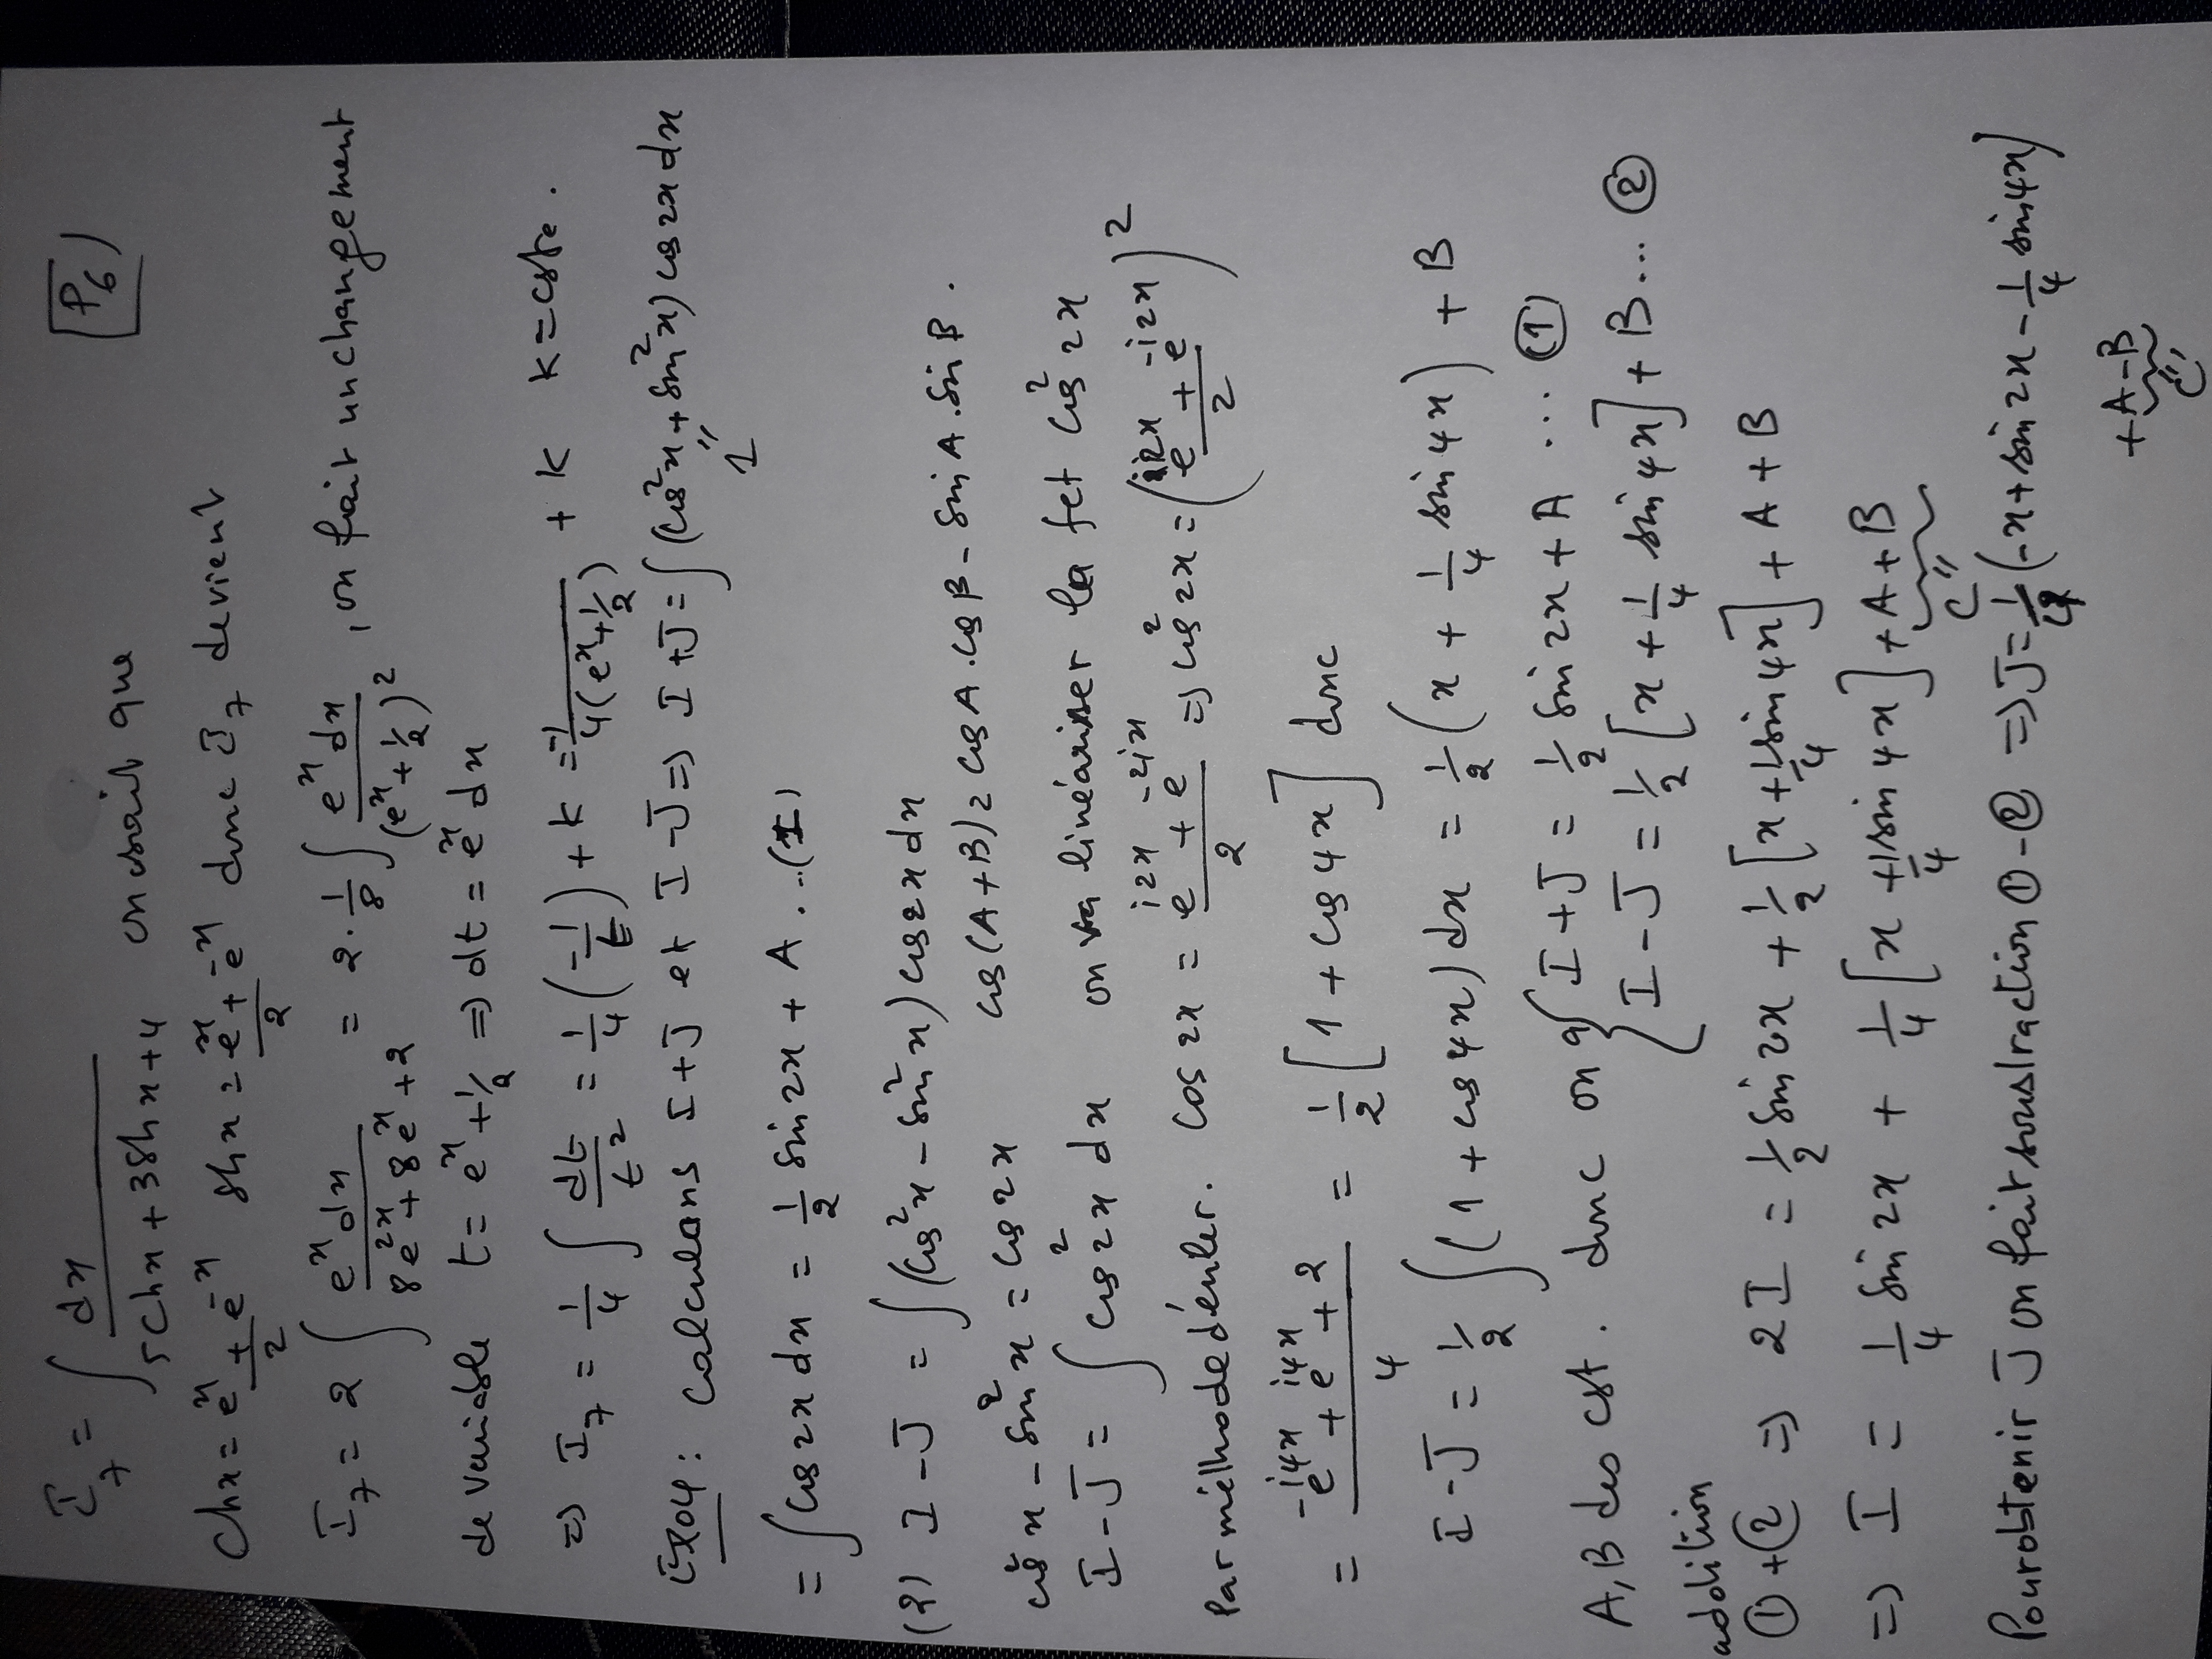 P6
I₇ = ∫ dx / (5chx + 3shx + 4) on sait que
chx = (eˣ + e⁻ˣ)/2 shx = (eˣ + e⁻ˣ)/2 donc I₇ devient
I₇ = 2 ∫ eˣdx / (8e²ˣ + 8eˣ + 2) = 2·1/8 ∫ eˣdx / (eˣ + 1/2)² , on fait un changement
de variable t = eˣ + 1/2 ⇒ dt = eˣ dx
⇒ I₇ = 1/4 ∫ dt/t² = 1/4 (-1/t) + k = -1/(4(eˣ + 1/2)) + k k = cste.
Exo4 : Calculons I+J et I-J ⇒ I+J = ∫ (cos²x + sin²x) cos2x dx
" 1
= ∫ cos2x dx = 1/2 sin2x + A ...(1)
(2) I-J = ∫ (cos²x - sin²x) cos2x dx
cos²x - sin²x = cos2x cos(A+B) = cosA.cosB - sinA.sinB.
I-J = ∫ cos²2x dx on va linéariser la fct cos²2x
Par méthode d'euler. cos2x = (e^{i2x} + e^{-2ix})/2 ⇒ cos²2x = ((e^{i2x} + e^{-i2x})/2)²
= (e^{-i4x} + e^{i4x} + 2)/4 = 1/2 [1 + cos4x] donc
I-J = 1/2 ∫ (1 + cos4x) dx = 1/2 (x + 1/4 sin4x) + B
A,B des cst. donc on a { I+J = 1/2 sin2x + A ... ①
I-J = 1/2 [x + 1/4 sin4x] + B... ②
addition
①+② ⇒ 2I = 1/2 sin2x + 1/2 [x + 1/4 sin4x] + A + B
⇒ I = 1/4 sin2x + 1/4 [x + 1/4 sin4x] + A + B
" C
Pour obtenir J on fait soustraction ①-② ⇒ J = 1/4 (-x + sin2x - 1/4 sin4x)
+ A - B
" C'